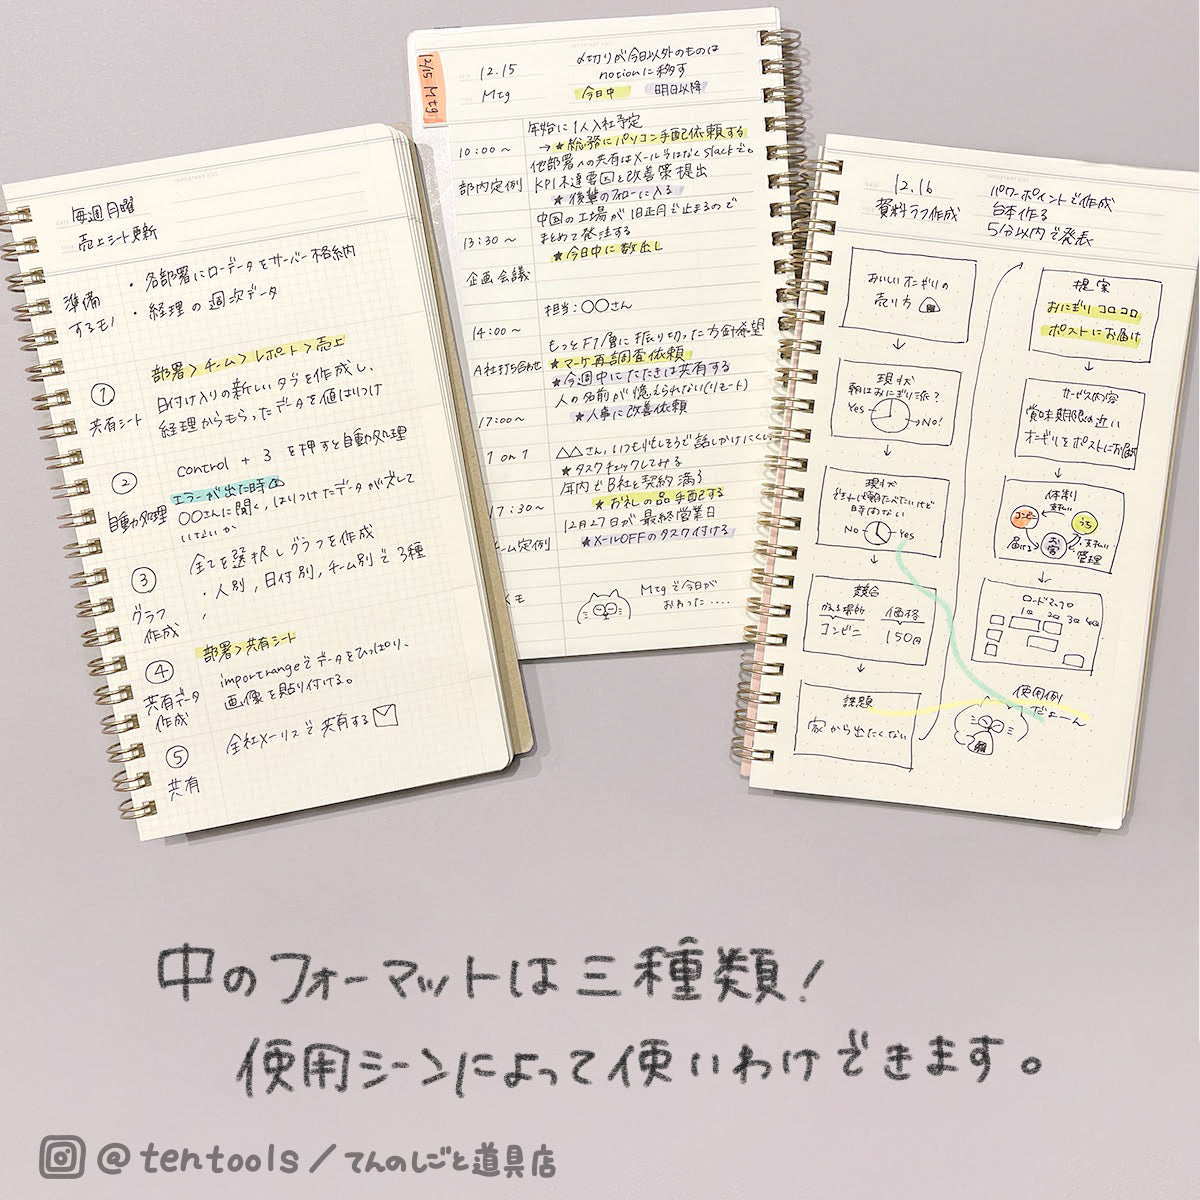 毎週月曜
売上シート更新
準備
するモノ
・各部署にローデータをサーバー格納
・経理の週次データ
部署>チーム>レポート>売上
①
共有シート
日付け入りの新しいタブを作成し、
経理からもらったデータを値はりつけ
②
自動処理
control + 3 を押すと自動処理
エラーが出た時は
〇〇さんに聞く,はりつけたデータがズレて
いないか
③
グラフ
作成
全てを選択しグラフを作成
・人別,日付別,チーム別で3種
④
共有データ
作成
部署>共有シート
importrangeでデータをひっぱり、
画像を貼り付ける。
⑤
共有
全社メーリスで共有する
12/15 Mtg
12.15
Mtg
〆切りが今日以外のものは
notionに移す
今日中
明日以降
10:00~
部内定例
年始に1人入社予定
→★総務にパソコン手配依頼する
他部署への共有はメールではなくSlackで。
KPI未達要因と改善策提出
★後輩のフォローに入る
13:30~
企画会議
中国の工場が旧正月で止まるので
まとめて発注する
★今日中に数出し
担当:〇〇さん
14:00~
A社打ち合わせ
もっとF1層に振り切った方針希望
★マーケ再調査依頼
★今週中にたたきは共有する
人の名前が憶えられない(リモート)
★人事に改善依頼
17:00~
1 on 1
△△さん,いつも忙しそうで話しかけにくい
★タスクチェックしてみる
17:30~
チーム定例
年内でB社と契約満了
★お礼の品手配する
12月27日が最終営業日
★メールOFFのタスク付ける
メモ
Mtgで今日が
おわった....
12.16
資料ラフ作成
パワーポイントで作成
台本作る
5分以内で発表
おいしいオニギリの
売り方
現状
朝はおにぎり派?
Yes
No!
現状
時間ない
No
Yes
競合
買える場所
価格
コンビニ
150円
課題
家から出たくない
提案
おにぎりコロコロ
ポストにお届け
サービス内容
賞味期限の近い
オニギリをポストにお届け
体制
支払い
コンビニ
うち
お客
届ける
支払い
管理
ロードマップ
1Q 2Q 3Q 4Q
使用例
だよーん
中のフォーマットは三種類!
使用シーンによって使いわけできます。
@tentools/てんのしごと道具店